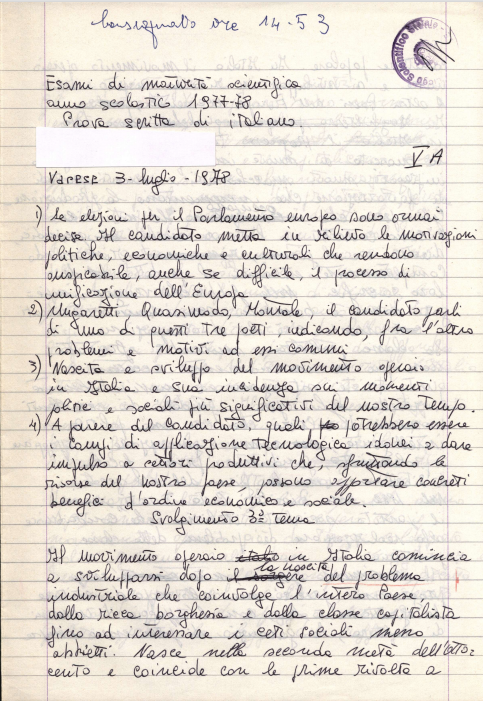 consegnato ore 14.53
Liceo Scientifico Statale
Esami di maturità scientifica
anno scolastico 1977-78
Prova scritta di italiano.
V A
Varese 3-luglio-1978
1) Le elezioni per il Parlamento europeo sono ormai
decise Il candidato metta in rilievo le motivazioni
politiche, economiche e culturali che rendono
auspicabile, anche se difficile, il processo di
unificazione dell'Europa
2) Ungaretti, Quasimodo, Montale, il candidato parli
di uno di questi tre poeti, indicando, fra l'altro
problemi e motivi ad essi comuni
3) Nascita e sviluppo del movimento operaio
in Italia e sua incidenza sui momenti
politici e sociali più significativi del nostro tempo.
4) A parere del candidato, quali potrebbero essere
i campi di applicazione tecnologica idonei a dare
impulso a settori produttivi che, sfruttando le
risorse del nostro paese, possono apportare concreti
benefici d'ordine economico e sociale.
Svolgimento 3° tema
Il movimento operaio italo in Italia comincia
a svilupparsi dopo il sorgere la nascita del problema
industriale che coinvolge l'intero Paese,
dalla ricca borghesia e dalla classe capitalista
fino ad interessare i ceti sociali meno
abbietti. Nasce nella seconda metà dell'otto-
cento e coincide con le prime rivolte a